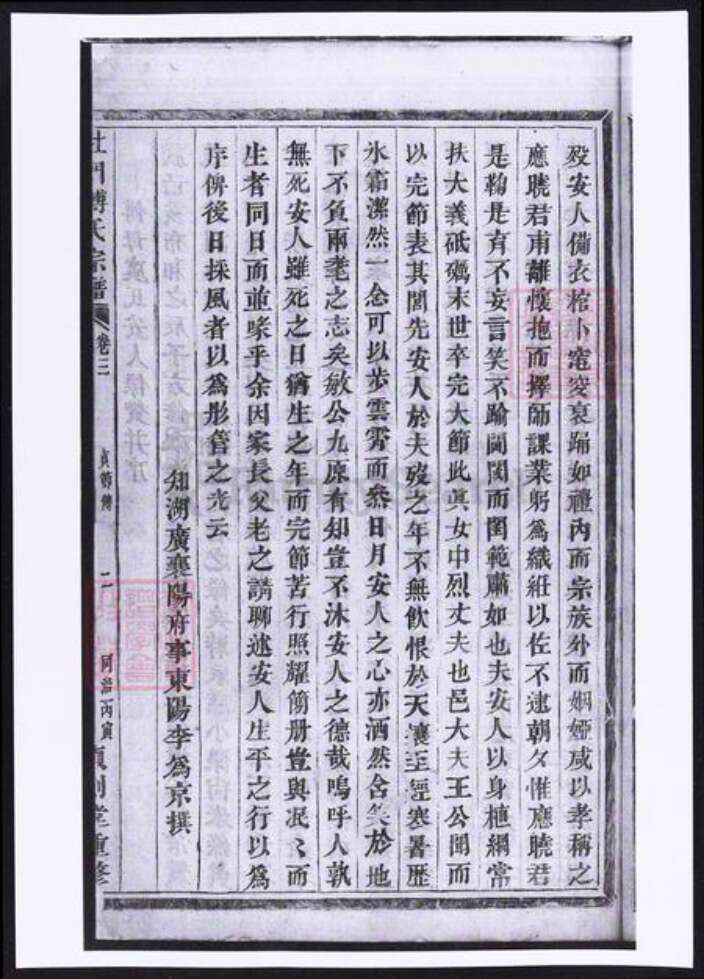 歿安人備衣棺卜窀穸哀踊如禮內而宗族外而姻婭咸以孝稱之
應曉君甫離懷抱而擇師課業躬為織絍以佐不逮朝夕惟應曉君
是鞠是育不妄言笑不踰閫閾而閨範肅如也夫安人以身植綱常
扶大義砥礪末世卒完大節此眞女中烈丈夫也邑大夫王公聞而
以完節表其閭先安人於夫歿之年不無飲恨於天壤至經寒暑歴
氷霜潔然一念可以步雲霄而叅日月安人之心亦洒然含笑於地
下不負兩耄之志矣敏公九原有知豈不沐安人之德哉嗚呼人孰
無死安人雖死之日猶生之年而完節苦行照耀簡册豈與泯〻而
生者同日而並喙乎余因家長父老之請聊述安人生平之行以為
序俾後日採風者以為彤管之光云
知湖廣襄陽府事東陽李為京撰
杜門傅氏宗譜 卷三 二 同治丙寅 重修